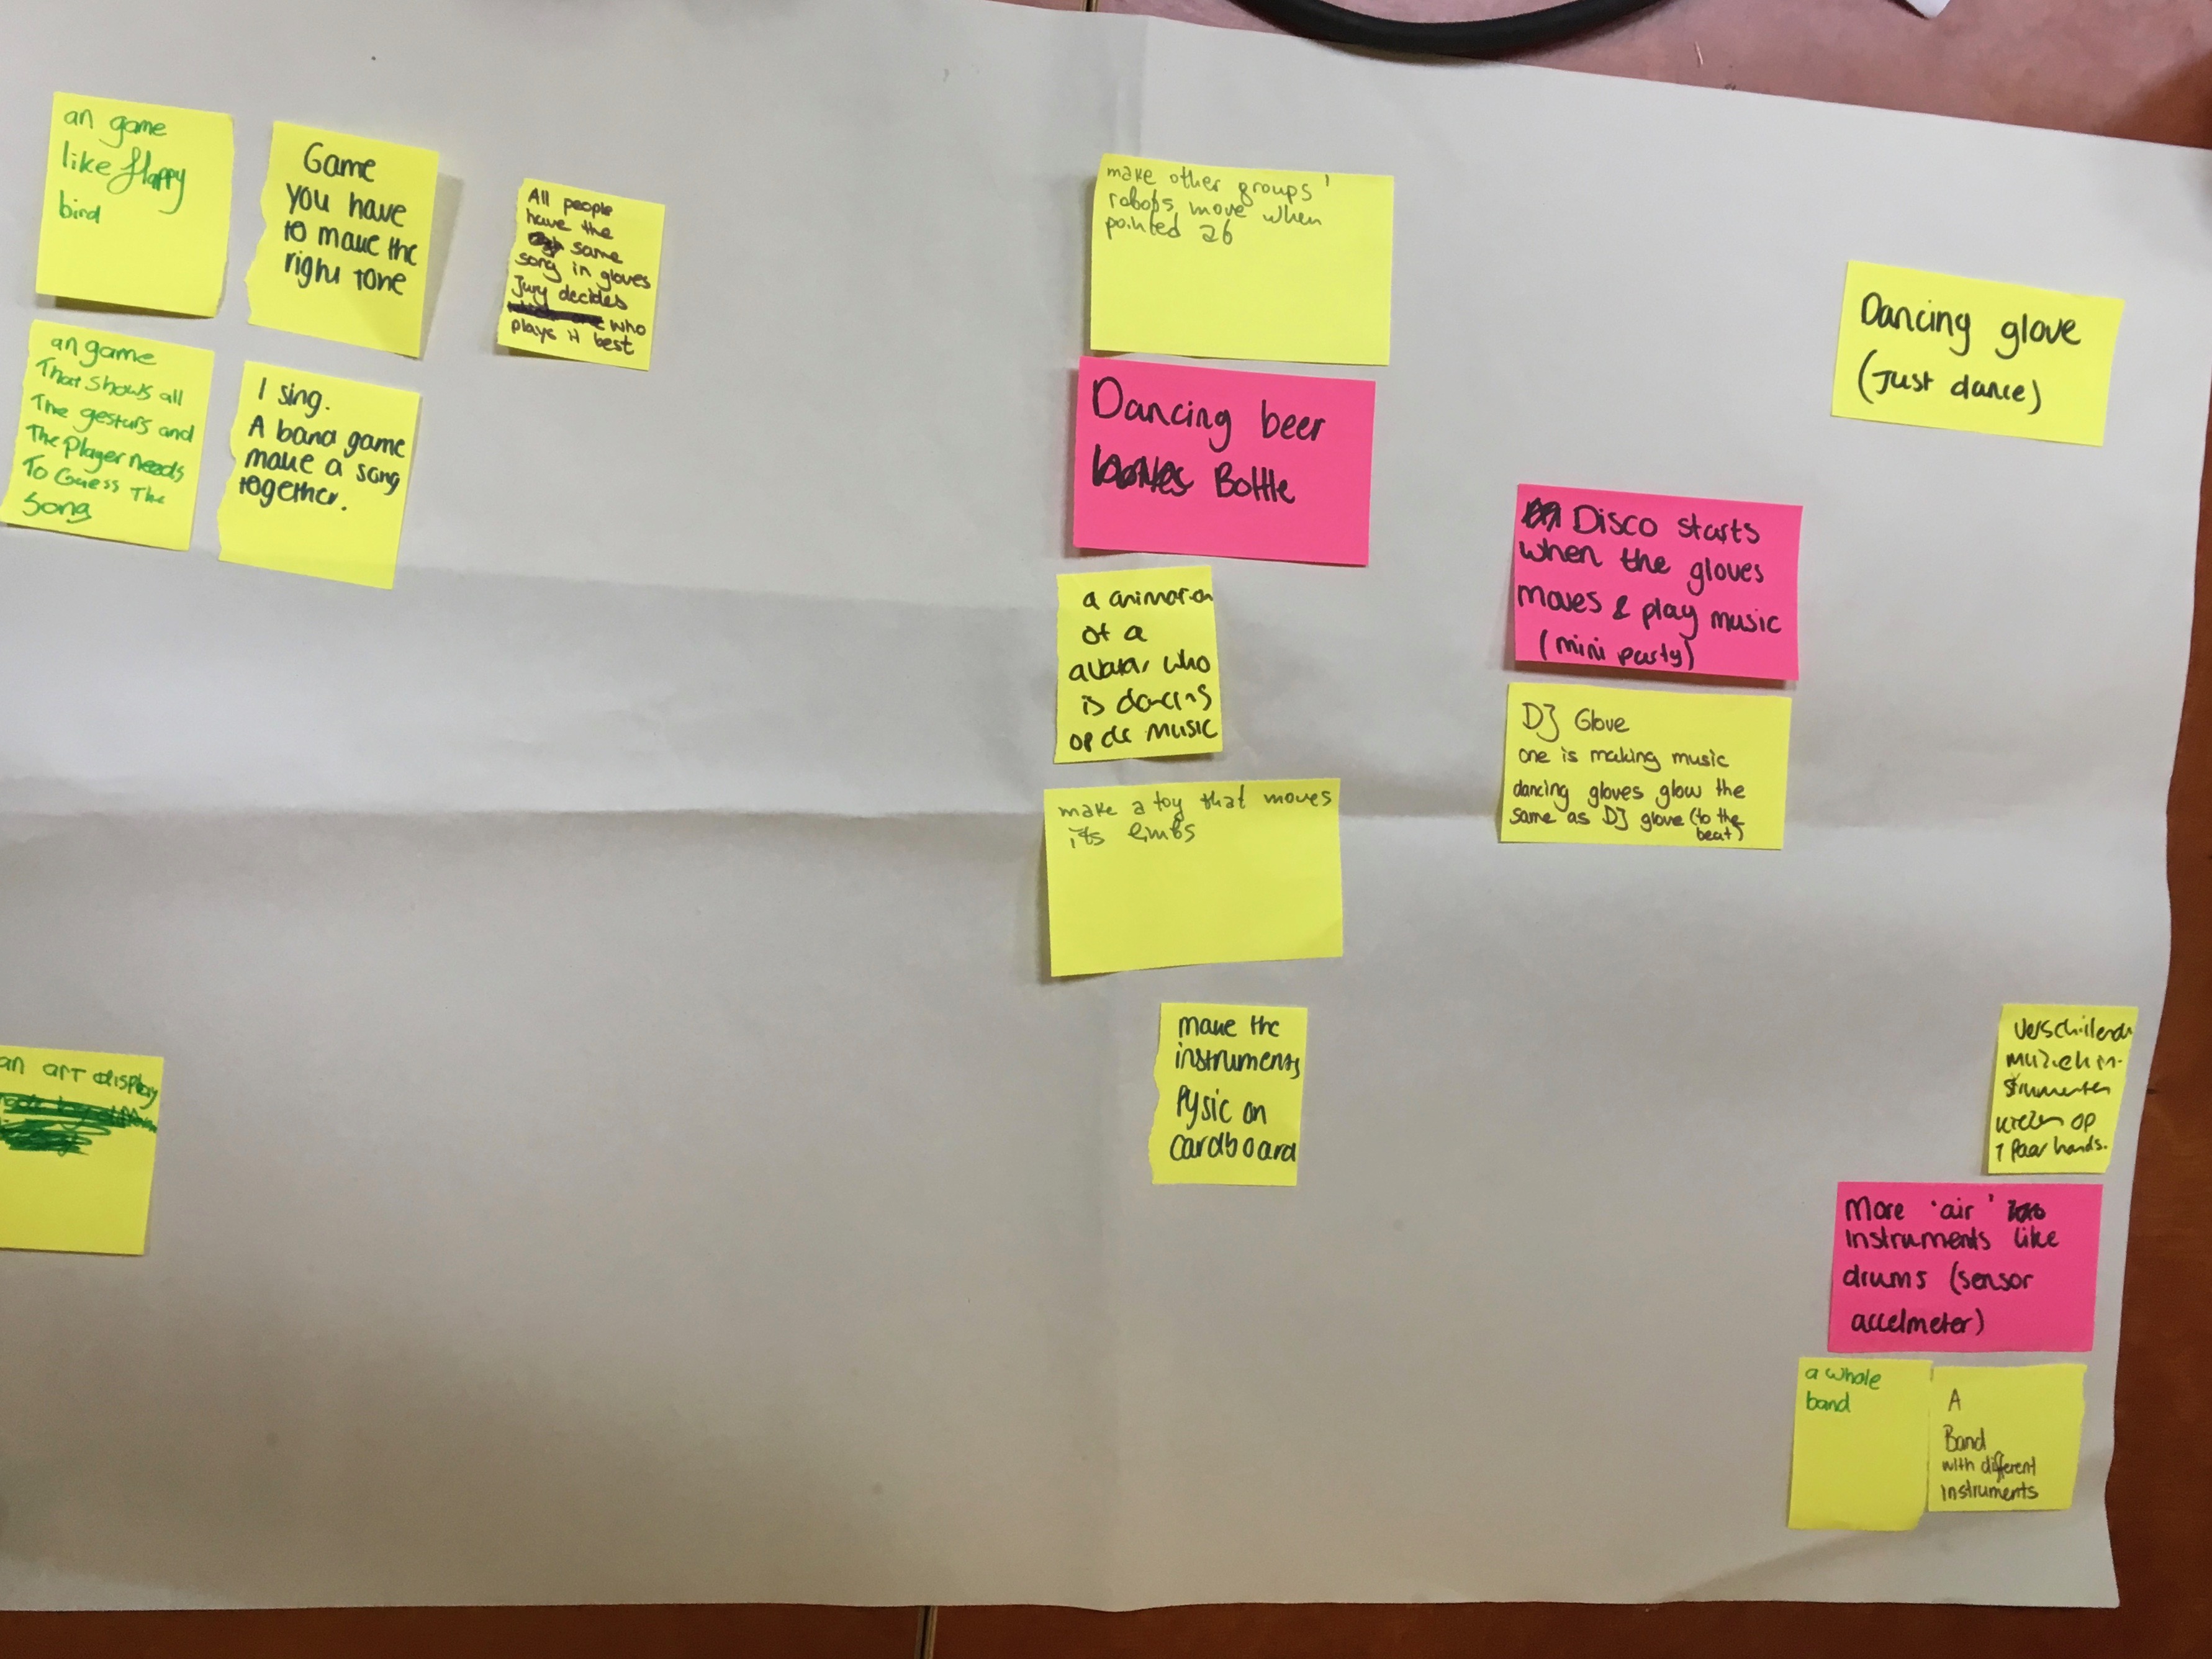 an game
like flappy
bird
Game
you have
to make the
right tone
All people
have the
same
song in gloves
Jury decides
who
plays it best
an game
That shows all
The gesturs and
The Player needs
To Guess The
Song
I sing.
A band game
make a song
together.
make other groups'
robots move when
pointed at
Dancing beer
Bottle
a animation
of a
avatar who
is dancing
op de music
make a toy that moves
its limbs
make the
instruments
Pysic on
cardboard
Dancing glove
(Just dance)
Disco starts
when the gloves
moves & play music
(mini party)
DJ Glove
one is making music
dancing gloves glow the
same as DJ glove (to the
beat)
an art display
verschillende
muziek in-
strumenten
op
1 paar hands.
More 'air'
instruments like
drums (sensor
accelmeter)
a whole
band
A
Band
with different
instruments